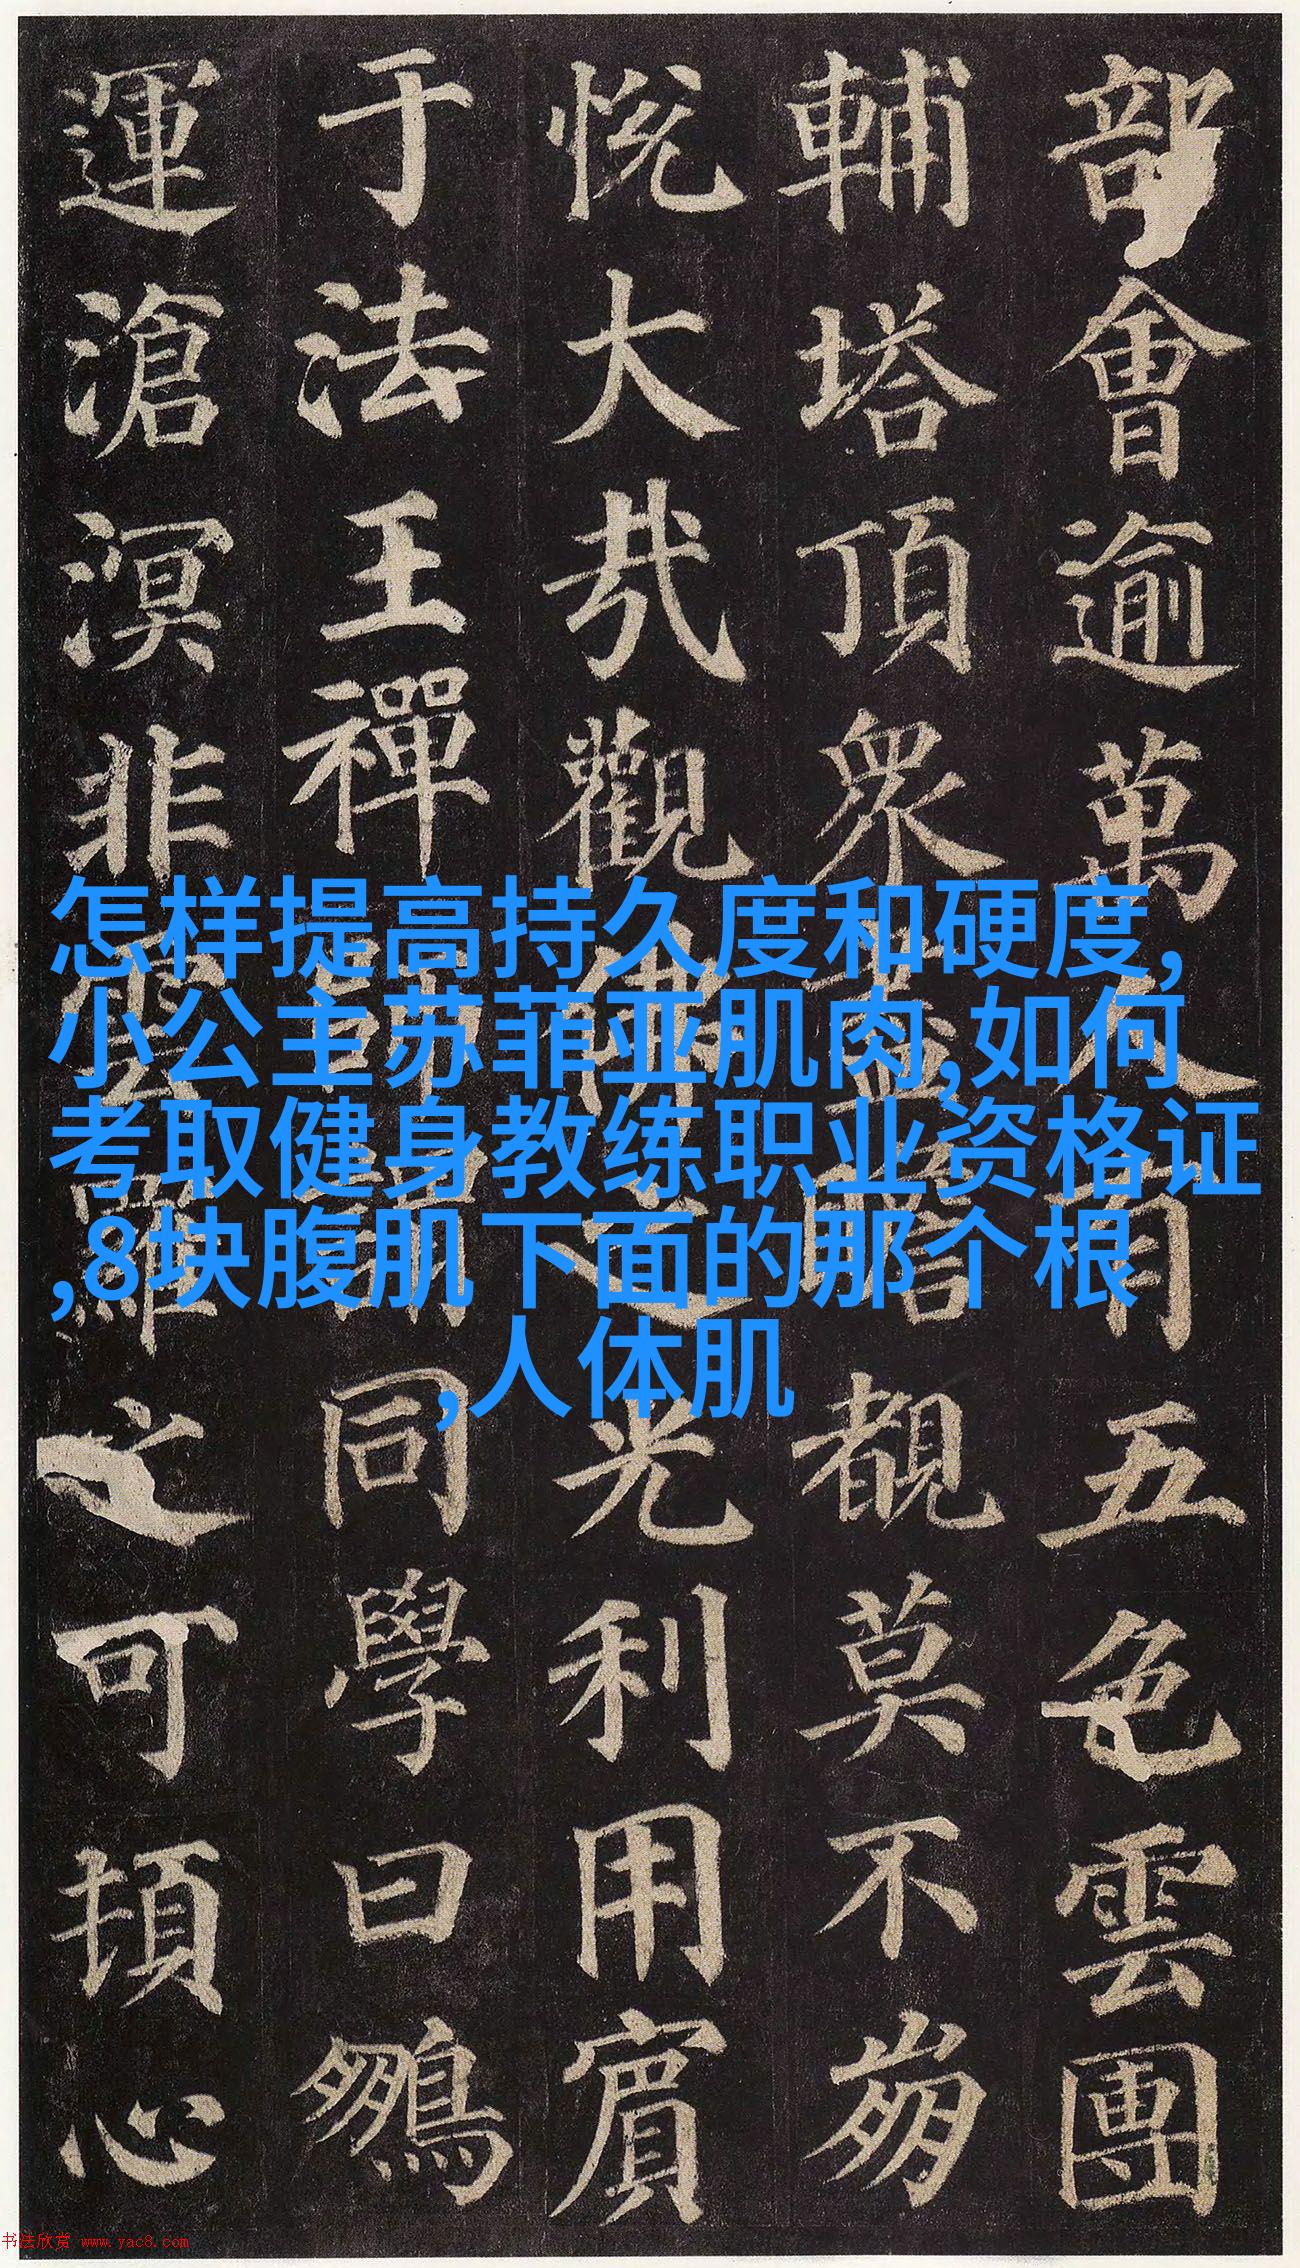 部會逾萬人有五色雲團
輔塔頂眾盡瞻覩莫不崩
悅大哉觀佛之光利用賓
于法王禪師謂同學曰鵬
運滄溟非雲羅之可頓心
怎样提高持久度和硬度,
小公主苏菲亚肌肉,如何
考取健身教练职业资格证
,8块腹肌下面的那个根
,人体肌
书法欣赏 www.yac8.com